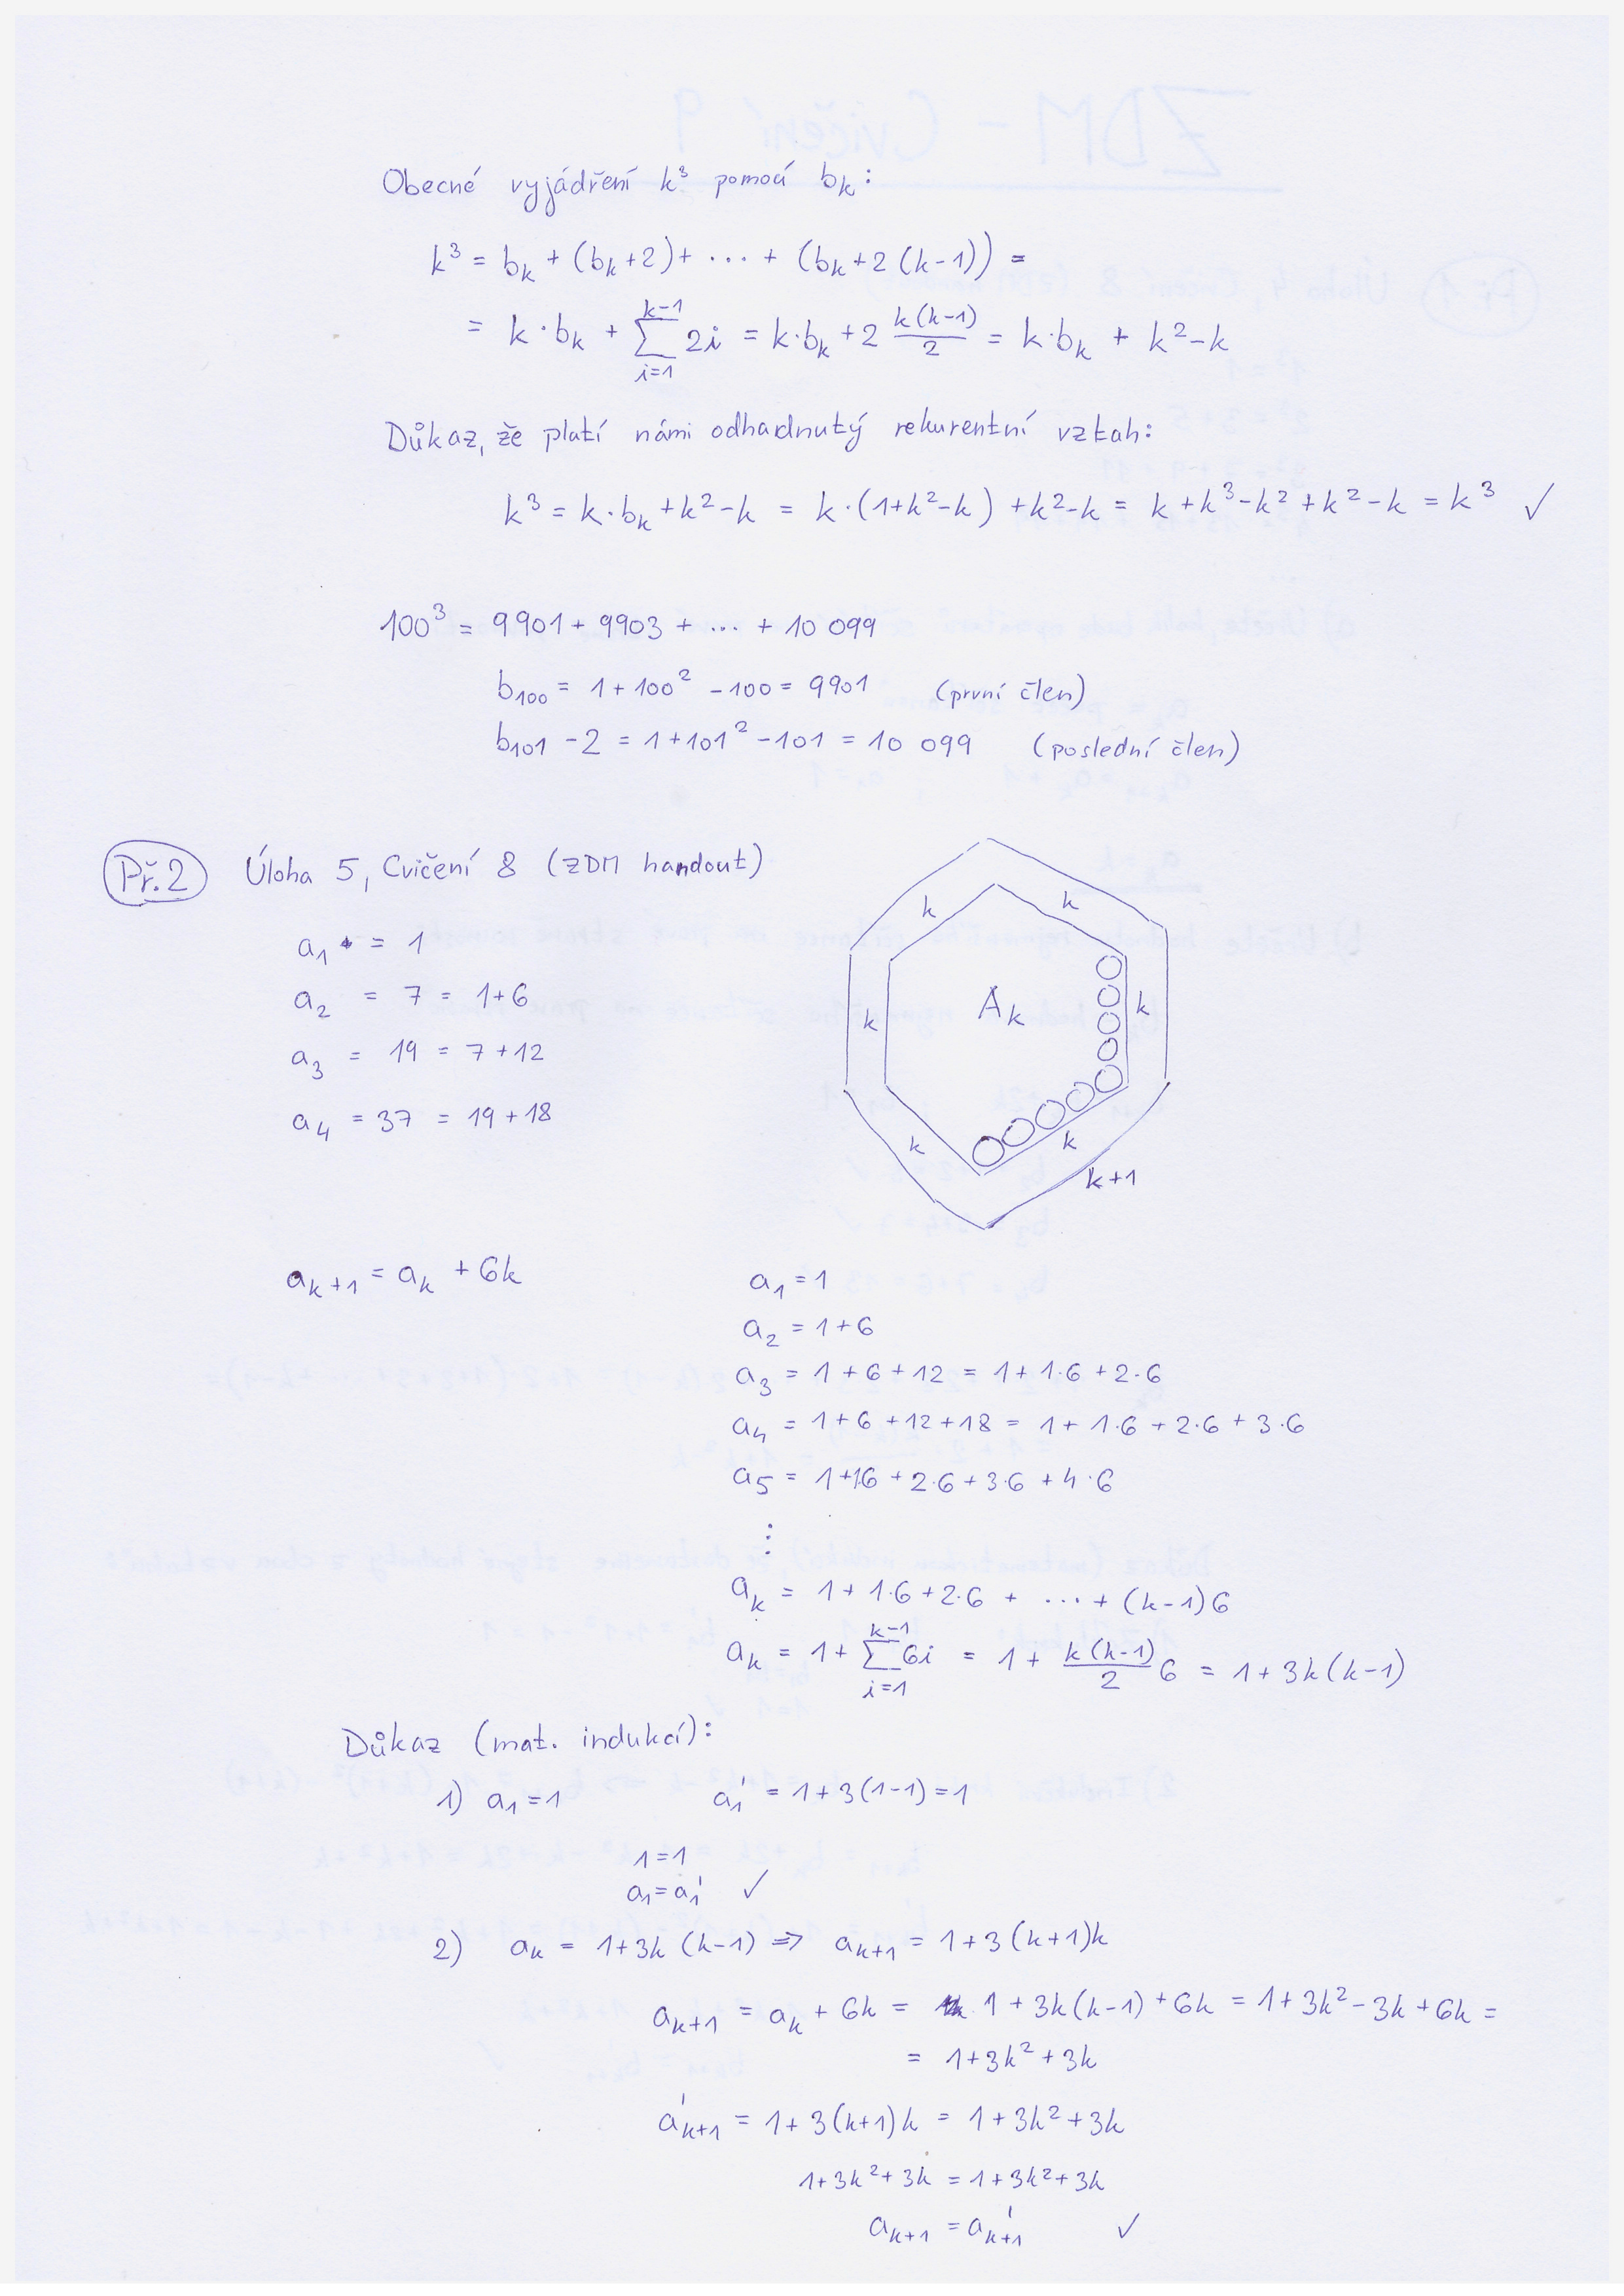 Obecné vyjádření k³ pomocí bₖ:
k³ = bₖ + (bₖ+2) + ... + (bₖ+2(k-1)) =
= k·bₖ + ∑_{i=1}^{k-1} 2i = k·bₖ + 2 k(k-1)/2 = k·bₖ + k²-k
Důkaz, že platí námi odhadnutý rekurentní vztah:
k³ = k·bₖ + k²-k = k·(1+k²-k) + k²-k = k+k³-k²+k²-k = k³ ✓
100³ = 9901 + 9903 + ... + 10 099
b₁₀₀ = 1 + 100² - 100 = 9901 (první člen)
b₁₀₁ - 2 = 1+101² - 101 = 10 099 (poslední člen)
Př.2 Úloha 5, Cvičení 8 (ZDM handout)
a₁ = 1
a₂ = 7 = 1+6
a₃ = 19 = 7+12
a₄ = 37 = 19+18
k k
Aₖ
k k
k k
k+1
aₖ₊₁ = aₖ + 6k
a₁ = 1
a₂ = 1+6
a₃ = 1+6+12 = 1+1·6+2·6
a₄ = 1+6+12+18 = 1+1·6+2·6+3·6
a₅ = 1+1·6+2·6+3·6+4·6
⋮
aₖ = 1+1·6+2·6 + ... + (k-1)6
aₖ = 1+ ∑_{i=1}^{k-1} 6i = 1 + k(k-1)/2 6 = 1+3k(k-1)
Důkaz (mat. indukcí):
1) a₁=1 a₁' = 1+3(1-1)=1
1=1
a₁=a₁' ✓
2) aₖ = 1+3k(k-1) => aₖ₊₁ = 1+3(k+1)k
aₖ₊₁ = aₖ + 6k = 1+3k(k-1)+6k = 1+3k²-3k+6k =
= 1+3k²+3k
a'ₖ₊₁ = 1+3(k+1)k = 1+3k²+3k
1+3k²+3k = 1+3k²+3k
aₖ₊₁ = a'ₖ₊₁ ✓